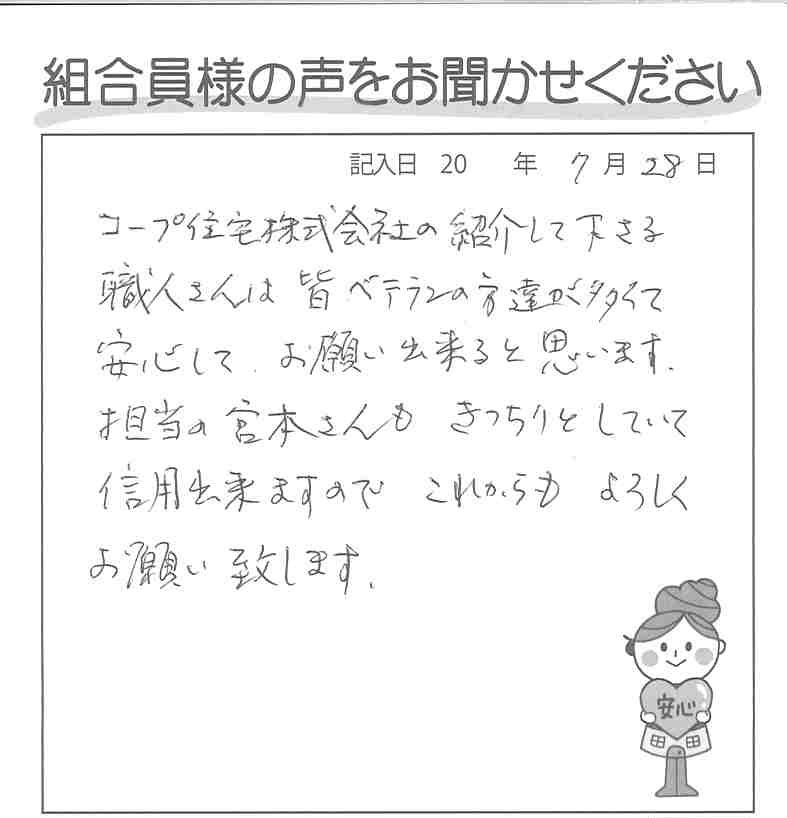 組合員様の声をお聞かせください
記入日 20 年 7月28日
コープ住宅株式会社の紹介して下さる
職人さんは皆ベテランの方達が多くて
安心して、お願い出来ると思います。
担当の宮本さんも きっちりとしていて
信用出来ますので これからも よろしく
お願い致します。
安心